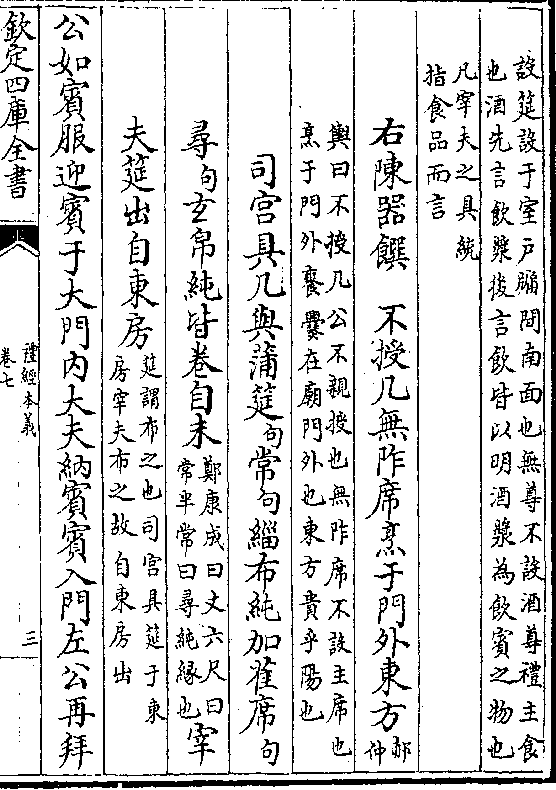 設筵設于室戶牖間南面也無尊不設酒尊禮主食
也酒先言飲漿後言飲皆以明酒漿為飲賓之物也
凡宰夫之具統
指食品而言
右陳器饌　不授几無阼席烹于門外東方
郝仲
輿曰不授几公不親授也無阼席不設主席也
烹于門外饔爨在廟門外也東方貴乎陽也
司宮具几與蒲筵句常句緇布純加萑席句
尋句玄帛純皆卷自末
鄭康成曰丈六尺曰
常半常曰尋純緣也
宰
夫筵出自東房
筵謂布之也司宮具筵于東
房宰夫布之故自東房出
公如賓服迎賓于大門內大夫納賓賓入門左公再拜
欽定四庫全書
禮經本義
卷七
三